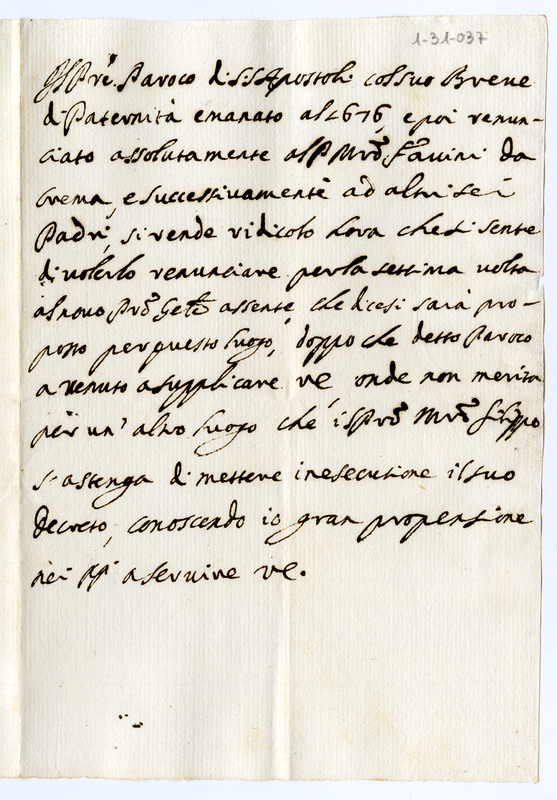 1-31-037
Il Pre. Paroco di SS Apostoli col suo Breve
di Paternità emanato al 1676, e poi renun-
ciato assolutamente al P Mro Favini da
Crema, e successivamente ad altri sei
Padri, si rende ridicolo hora che si sente
di volerlo renunciare per la settima volta
al novo Pro Gete assente, che dicesi sarà pro-
posto per questo luogo, doppo che detto Paroco
a venuto a supplicare VE, onde non merita
per un' altro luogo che il Pro Mro Filippo
s'astenga di mettere in esecutione il suo
decreto, conoscendo io gran propensione
nei PP a servire VE.